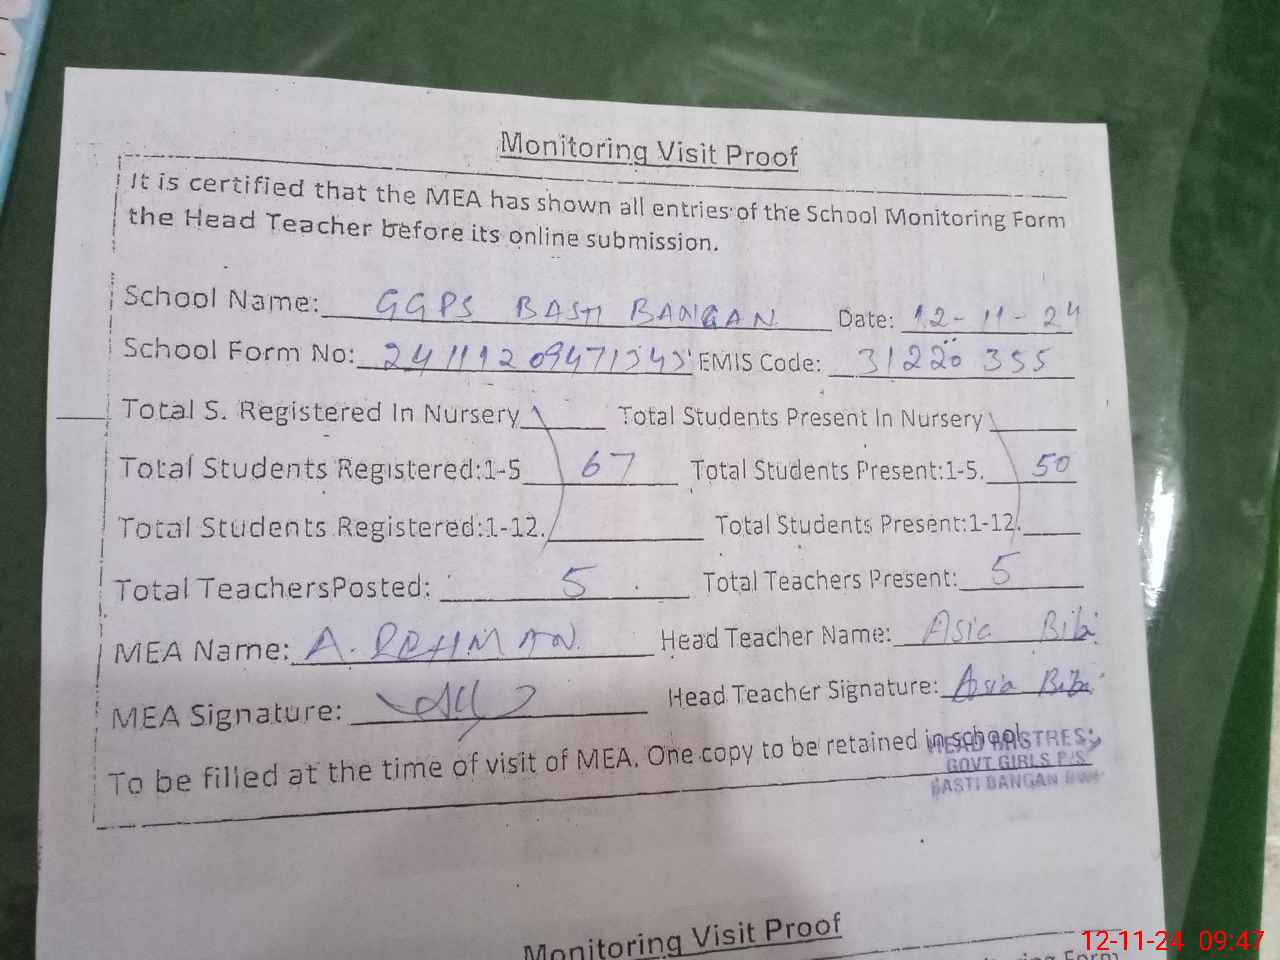 Monitoring Visit Proof
It is certified that the MEA has shown all entries of the School Monitoring Form
the Head Teacher before its online submission.
School Name: GGPS BASTI BANGAN Date: 12-11-24
School Form No: EMIS Code: 31220 355
Total S. Registered In Nursery Total Students Present In Nursery
Total Students Registered:1-5 67 Total Students Present:1-5. 50
Total Students Registered:1-12. Total Students Present:1-12.
Total TeachersPosted: 5 Total Teachers Present: 5
MEA Name: A. REHMAN Head Teacher Name: Asia Bibi
MEA Signature: Head Teacher Signature: Asia Bibi
To be filled at the time of visit of MEA. One copy to be retained in school
HEAD MISTRESS
GOVT GIRLS P/S
BASTI BANGAN
Monitoring Visit Proof
12-11-24 09:47